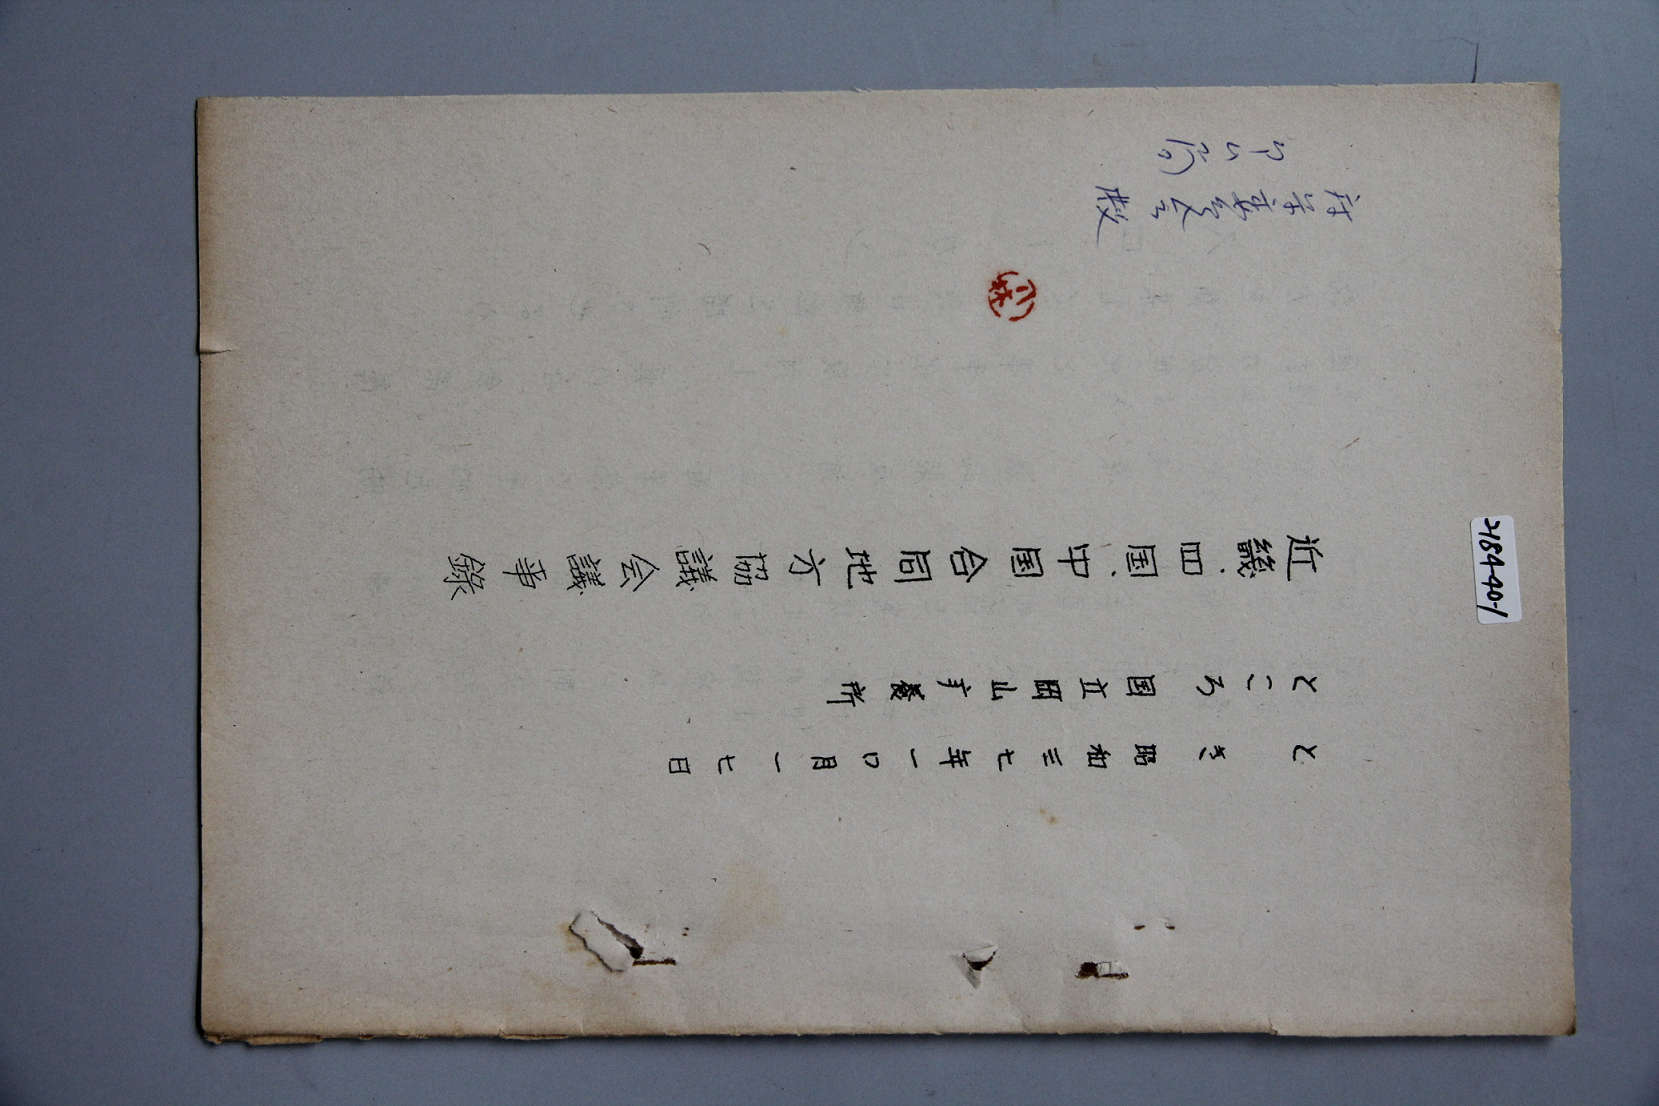 近畿、四国、中国合同地方協議会議事録
ところ 国立岡山療養所
とき 昭和三七年一〇月一七日
小林
2189-90-1